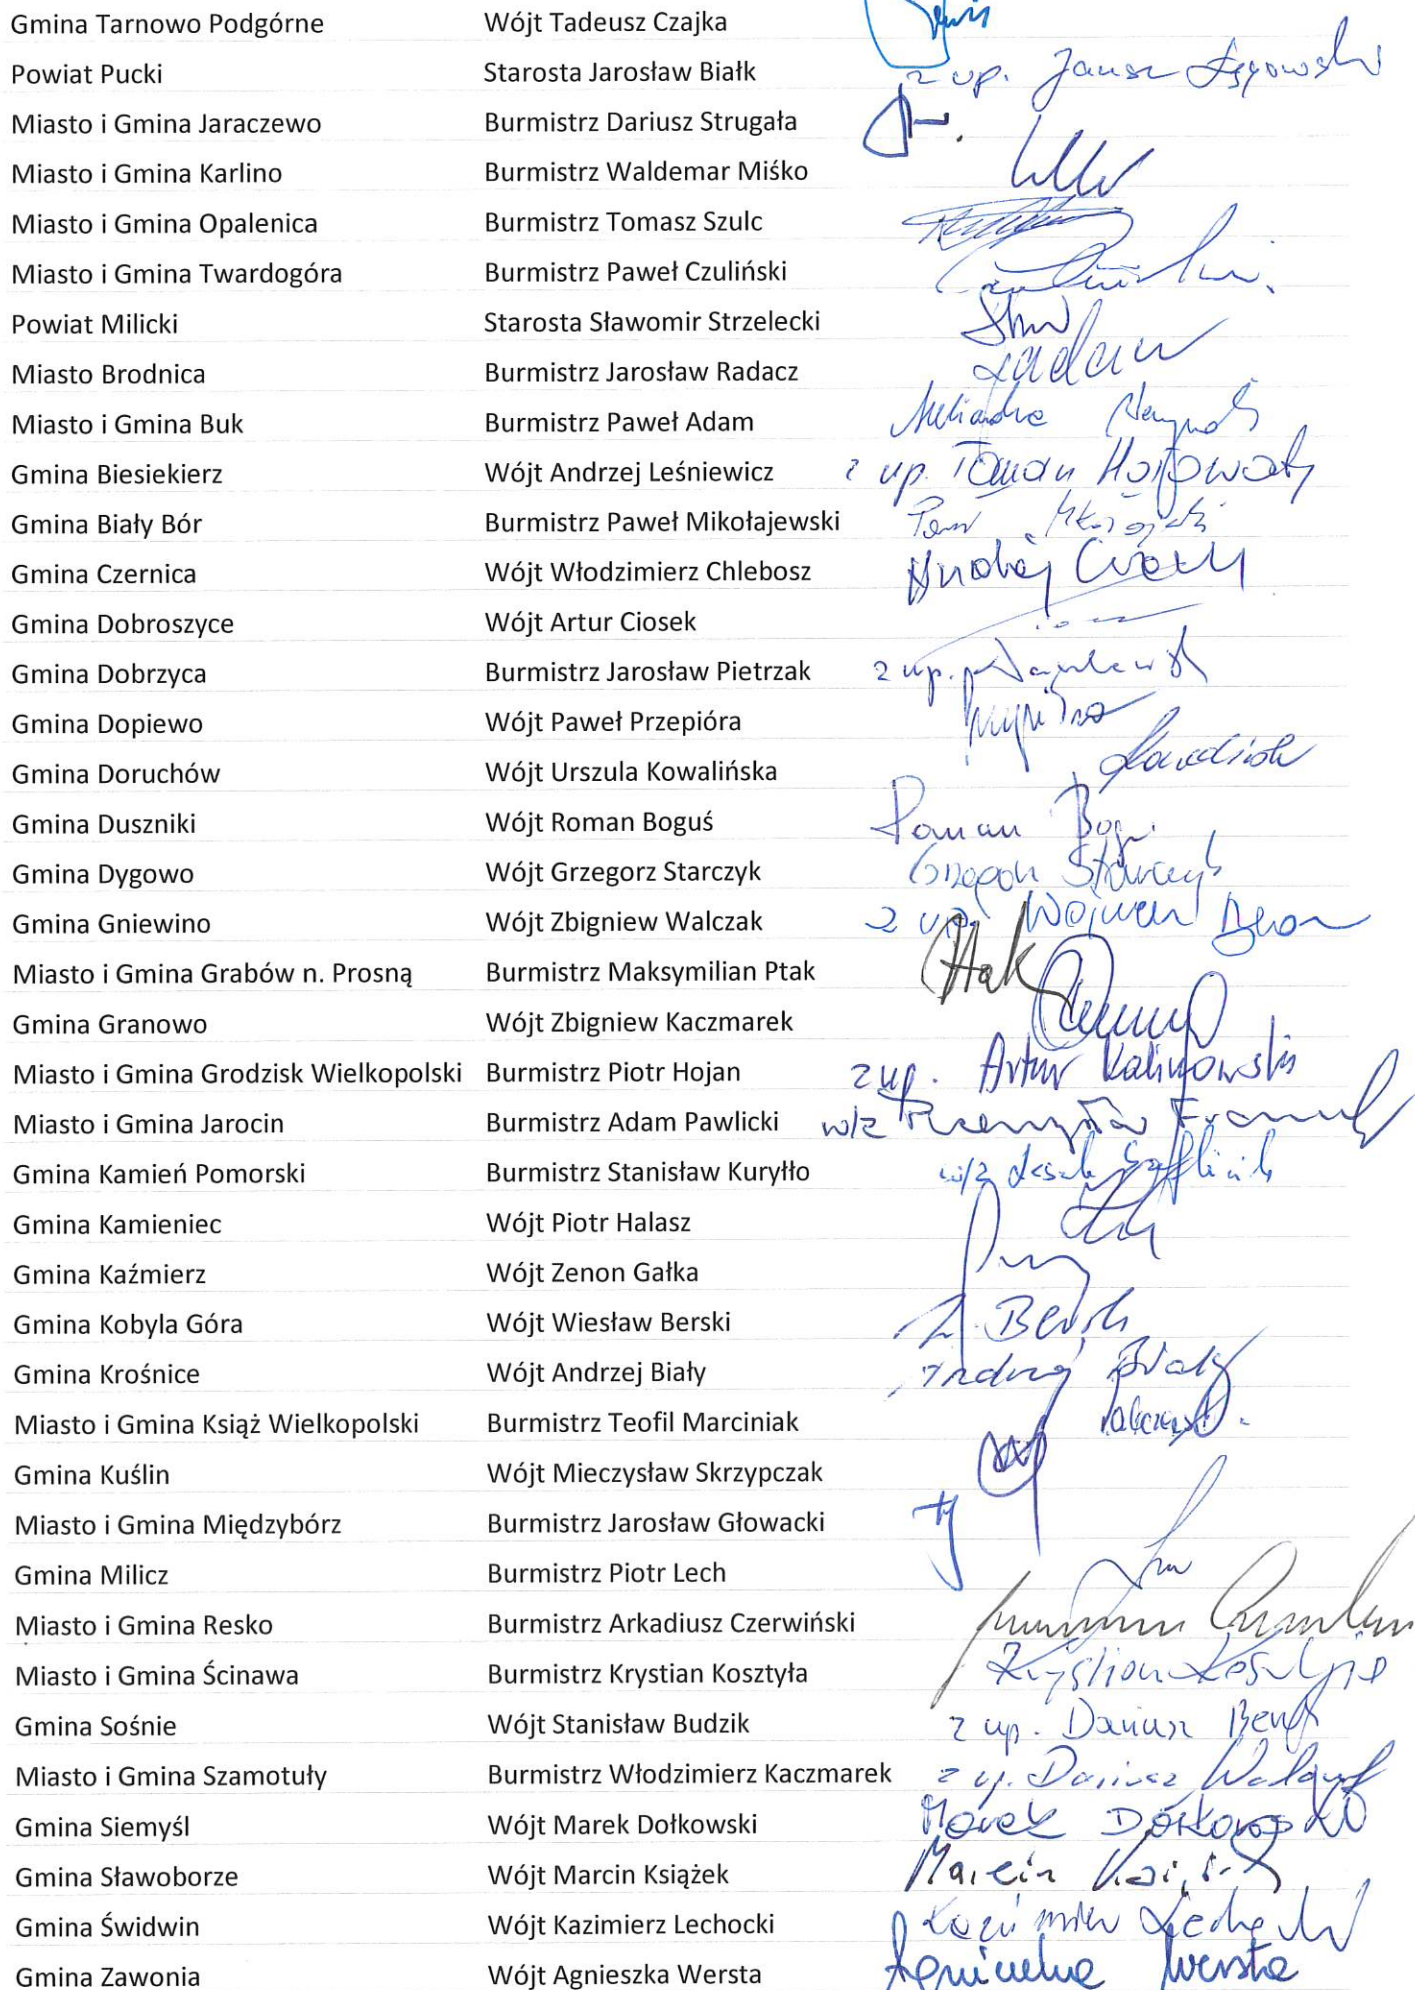 Gmina Tarnowo Podgórne Wójt Tadeusz Czajka
Powiat Pucki Starosta Jarosław Białk z up. Janusz
Miasto i Gmina Jaraczewo Burmistrz Dariusz Strugała
Miasto i Gmina Karlino Burmistrz Waldemar Miśko
Miasto i Gmina Opalenica Burmistrz Tomasz Szulc
Miasto i Gmina Twardogóra Burmistrz Paweł Czuliński
Powiat Milicki Starosta Sławomir Strzelecki
Miasto Brodnica Burmistrz Jarosław Radacz
Miasto i Gmina Buk Burmistrz Paweł Adam
Gmina Biesiekierz Wójt Andrzej Leśniewicz z up.
Gmina Biały Bór Burmistrz Paweł Mikołajewski
Gmina Czernica Wójt Włodzimierz Chlebosz
Gmina Dobroszyce Wójt Artur Ciosek
Gmina Dobrzyca Burmistrz Jarosław Pietrzak z up.
Gmina Dopiewo Wójt Paweł Przepióra
Gmina Doruchów Wójt Urszula Kowalińska
Gmina Duszniki Wójt Roman Boguś Roman
Gmina Dygowo Wójt Grzegorz Starczyk Grzegorz Starczyk
Gmina Gniewino Wójt Zbigniew Walczak z up. Wojciech
Miasto i Gmina Grabów n. Prosną Burmistrz Maksymilian Ptak Ptak
Gmina Granowo Wójt Zbigniew Kaczmarek
Miasto i Gmina Grodzisk Wielkopolski Burmistrz Piotr Hojan z up. Artur Kalinowski
Miasto i Gmina Jarocin Burmistrz Adam Pawlicki w/z Przemysław
Gmina Kamień Pomorski Burmistrz Stanisław Kuryłło w/z
Gmina Kamieniec Wójt Piotr Halasz
Gmina Kaźmierz Wójt Zenon Gałka
Gmina Kobyla Góra Wójt Wiesław Berski
Gmina Krośnice Wójt Andrzej Biały Andrzej Biały
Miasto i Gmina Książ Wielkopolski Burmistrz Teofil Marciniak
Gmina Kuślin Wójt Mieczysław Skrzypczak
Miasto i Gmina Międzybórz Burmistrz Jarosław Głowacki
Gmina Milicz Burmistrz Piotr Lech
Miasto i Gmina Resko Burmistrz Arkadiusz Czerwiński
Miasto i Gmina Ścinawa Burmistrz Krystian Kosztyła Krystian Kosztyła
Gmina Sośnie Wójt Stanisław Budzik z up. Dariusz
Miasto i Gmina Szamotuły Burmistrz Włodzimierz Kaczmarek z up. Dariusz
Gmina Siemyśl Wójt Marek Dołkowski Marek Dołkowski
Gmina Sławoborze Wójt Marcin Książek Marcin
Gmina Świdwin Wójt Kazimierz Lechocki Kazimierz Lechocki
Gmina Zawonia Wójt Agnieszka Wersta Agnieszka Wersta